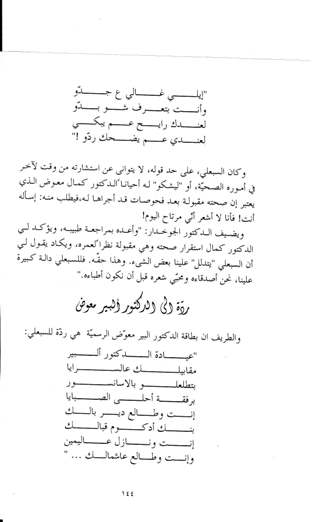 "إيلـــي غـــالي ع جـــدّو
وأنـــت بتعـــرف شـــو بـــدّو
لعنـــدك رايـــح عـــم يبكـــي
لعنـــدي عـــم يضـــحك ردّو !"
وكان السبعلي، على حد قوله، لا يتوانى عن استشارته من وقت لآخر
في أموره الصحيّة، أو "ليشكو" له أحيانا"الدكتور كمال معوض الذي
يعتبر إن صحته مقبولة بعد فحوصات قد أجراها له.فيطلب منه: إسأله
أنت! فأنا لا أشعر أنّي مرتاح اليوم!
ويضيف الدكتور الجوخدار: "وأعده بمراجعة طبيبه، ويؤكد لي
الدكتور كمال استقرار صحته وهي مقبولة نظرا"لعمره، ويكاد يقول لي
أن السبعلي "يتدلل" علينا بعض الشيء. وهذا حقّه. فللسبعلي دالة كبيرة
علينا، نحن أصدقاءه ومحبّي شعره قبل أن نكون أطباءه."
ردّة الى الدكتور البير معوض
والطريف ان بطاقة الدكتور البير معوّض الرسميّة هي ردّة للسبعلي:
"عيـــادة الـــدكتور ألـــبير
مقابيلـــك عالـــرايا
بتطلعلـــو بالاسانـــور
برفقـــة أحلـــى الصـــبايا
إنـــت وطـــالع ديـــر بالـــك
بنـــك أدكـــوم قبالـــك
إنـــت ونـــازل عـــاليمين
وإنـــت وطـــالع عاشمالـــك ... "
١٤٤